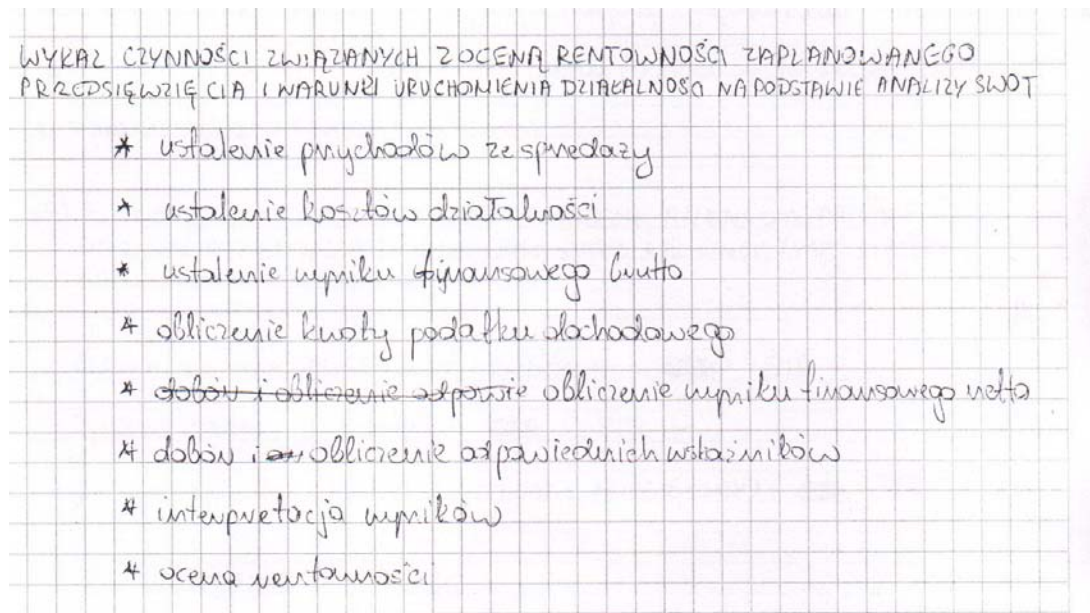 WYKAZ CZYNNOŚCI ZWIĄZANYCH Z OCENĄ RENTOWNOŚCI ZAPLANOWANEGO
PRZEDSIĘWZIĘCIA I WARUNKI URUCHOMIENIA DZIAŁALNOŚCI NA PODSTAWIE ANALIZY SWOT
* ustalenie przychodów ze sprzedaży
* ustalenie kosztów działalności
* ustalenie wyniku finansowego brutto
* obliczenie kwoty podatku dochodowego
* dobór i obliczenie odpowie obliczenie wyniku finansowego netto
* dobór i obliczenie odpowiednich wskaźników
* interpretacja wyników
* ocena rentowności